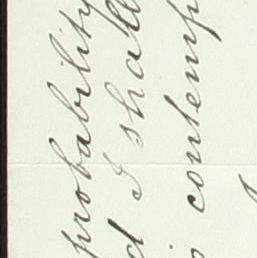 probability
d I shall
contemp